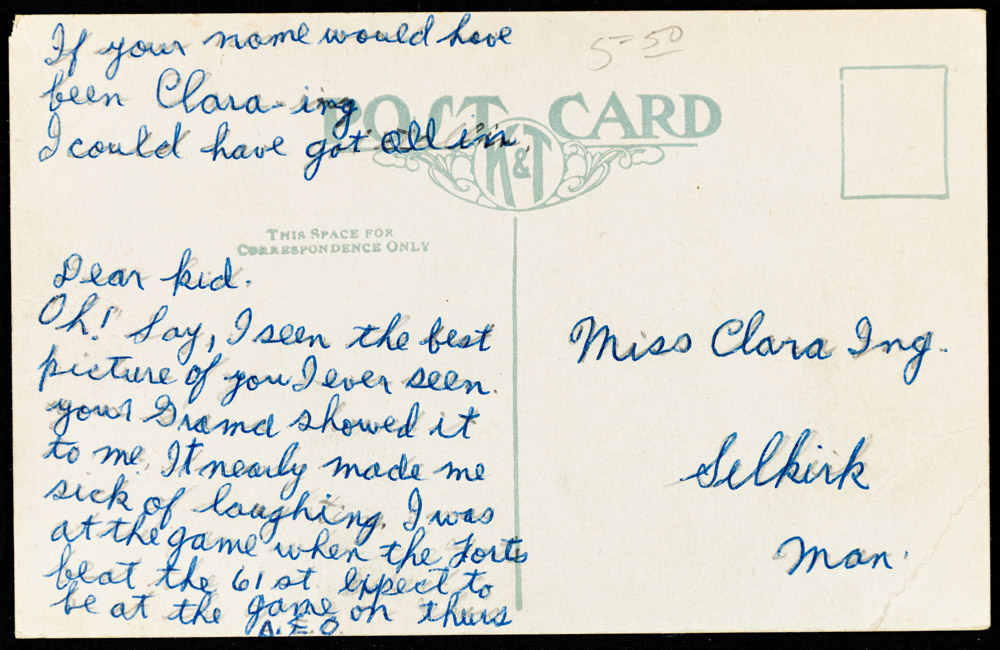 If your name would have
been Clara-ing
I could have got all in.
5-50
POST CARD
K&T
THIS SPACE FOR
CORRESPONDENCE ONLY
Dear kid.
Oh! Say, I seen the best
picture of you I ever seen.
your Grama showed it
to me. It nearly made me
sick of laughing. I was
at the game when the Forts
beat the 61st Expect to
be at the game on thurs
A.E.O.
Miss Clara Ing.
Selkirk
Man.